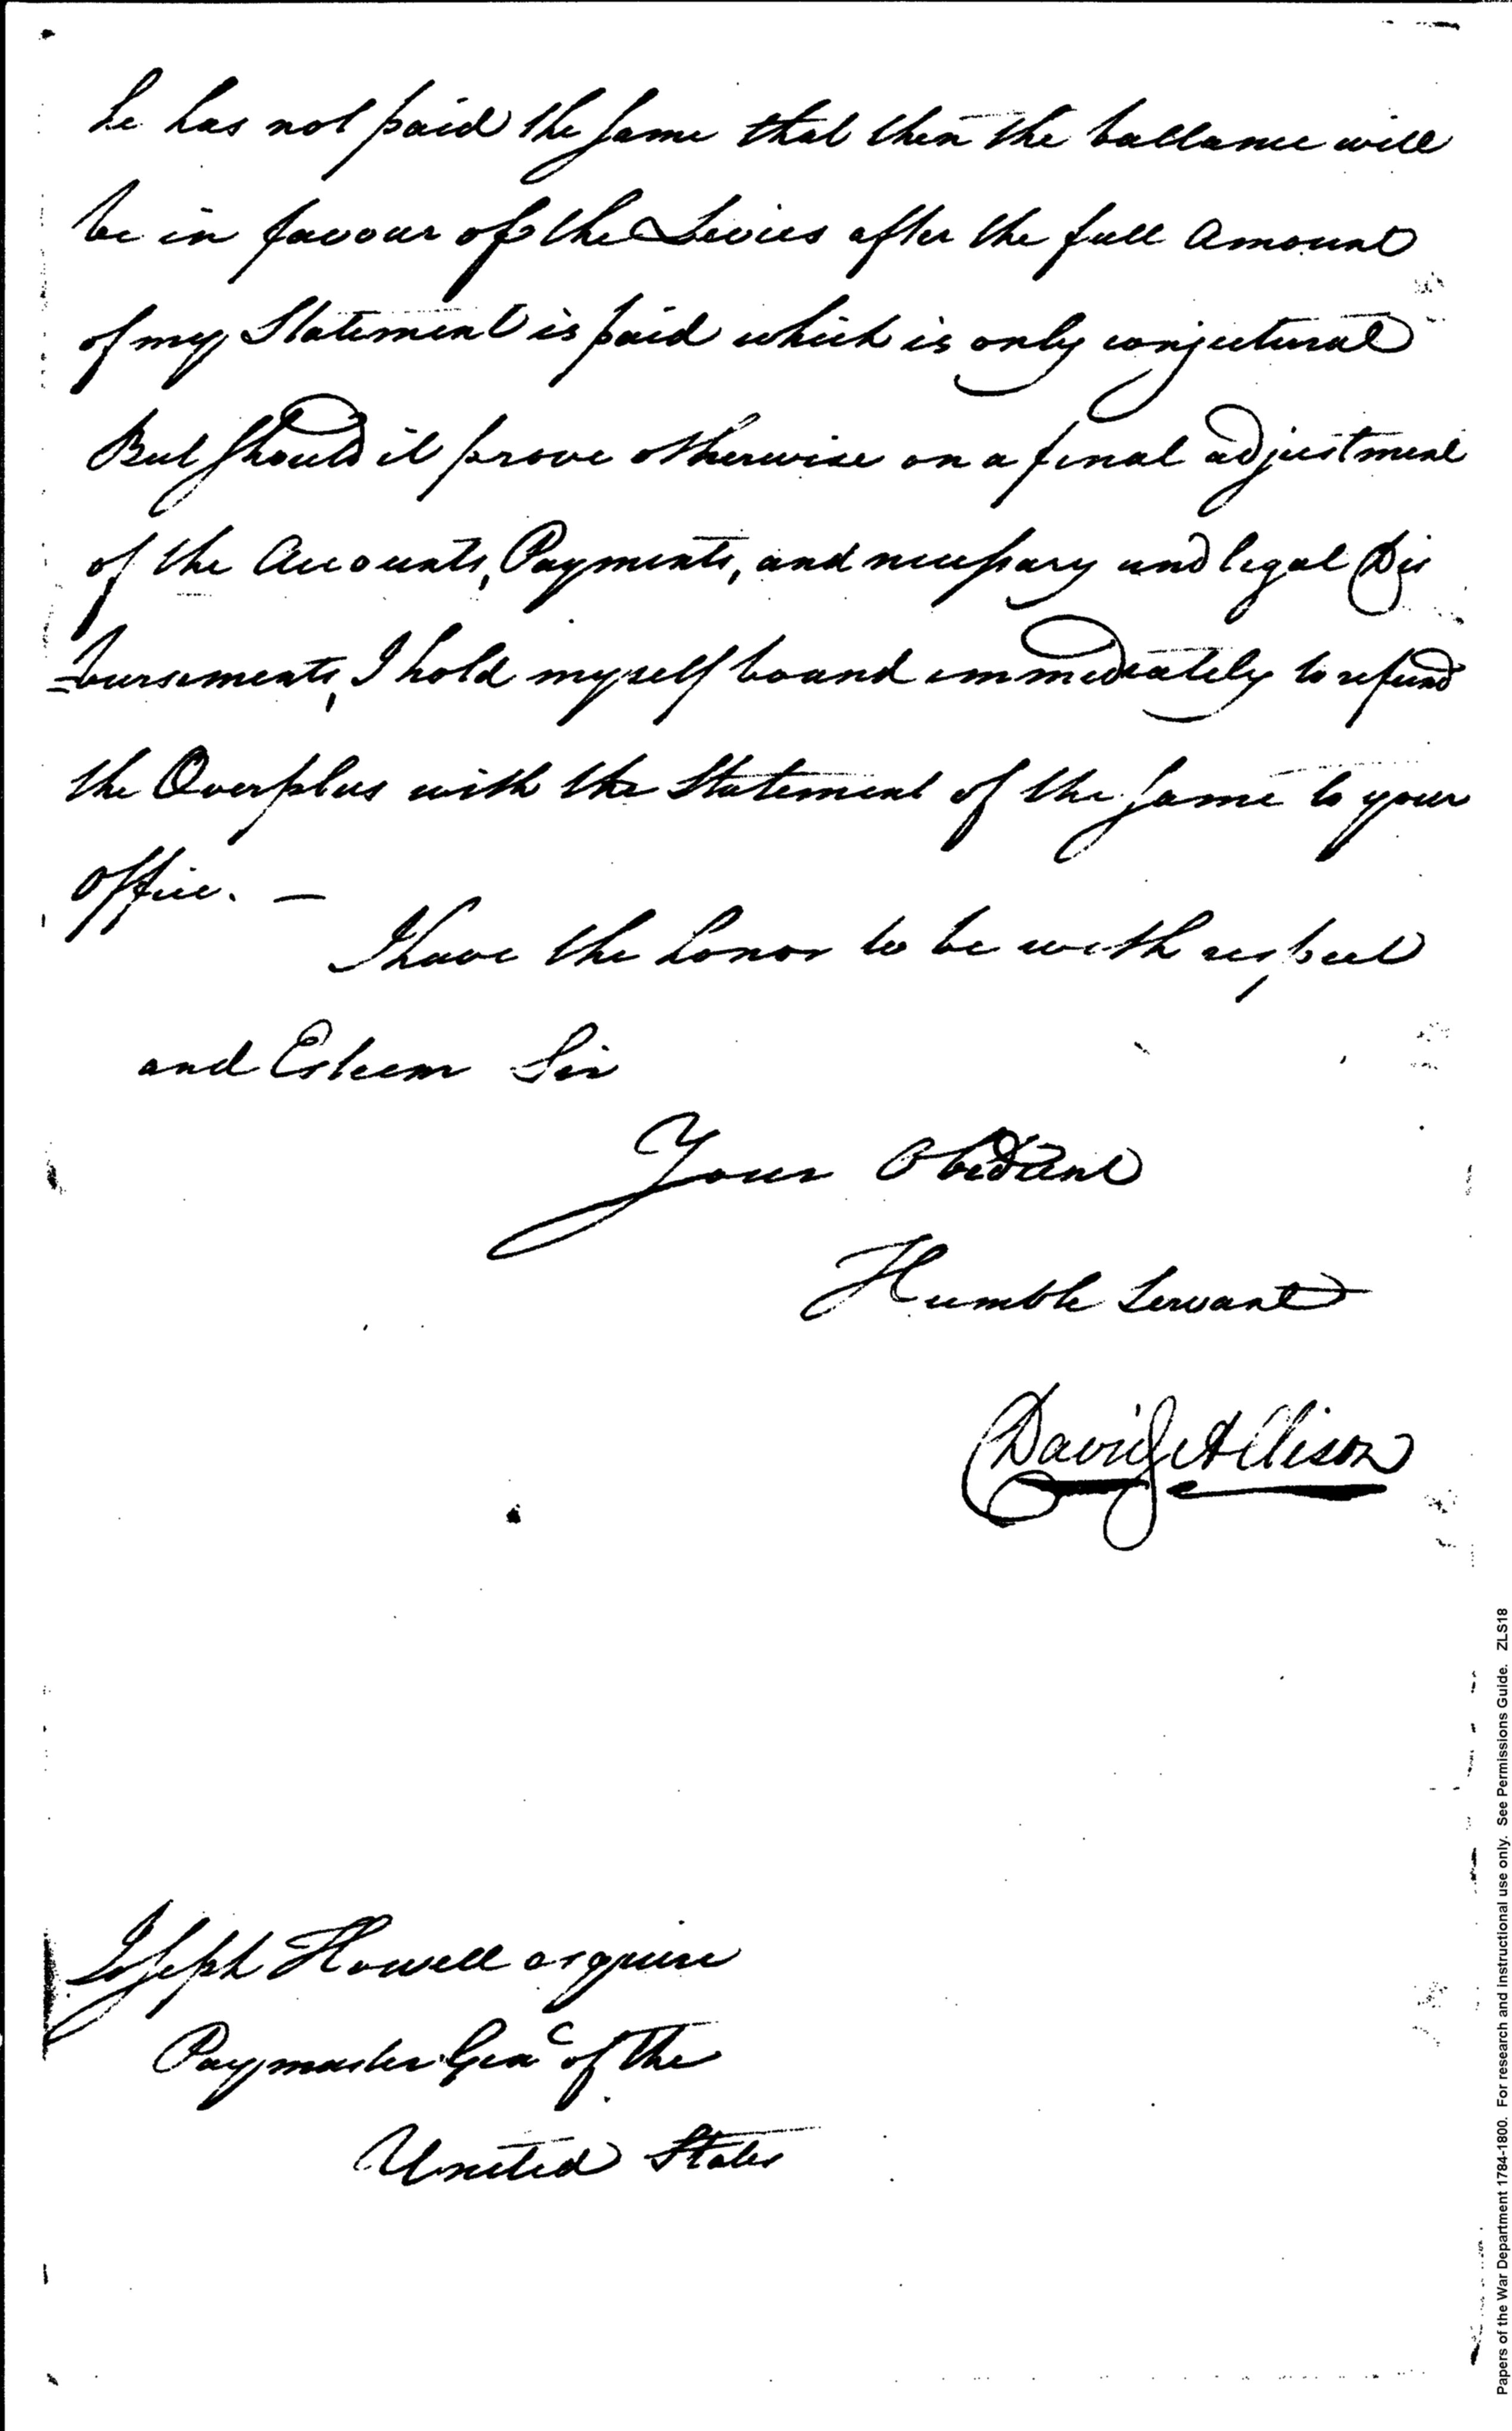 he has not paid the same that then the ballance will
be in favour of the Levies after the full Amount
of my Statement is paid which is only conjectural
But should it prove otherwise on a final adjustment
of the Accounts, Payments, and necessary and legal Dis
=bursements, I hold myself bound immediately to refund
the Overplus with the Statement of the same to your
Office. —
I have the honor to be with respect
and Esteem Sir
Your Obedient
Humble Servant
David Allison
Joseph Howell esquire
Paymaster Genl of the
United States
Papers of the War Department 1784-1800. For research and instructional use only. See Permissions Guide. ZLS18